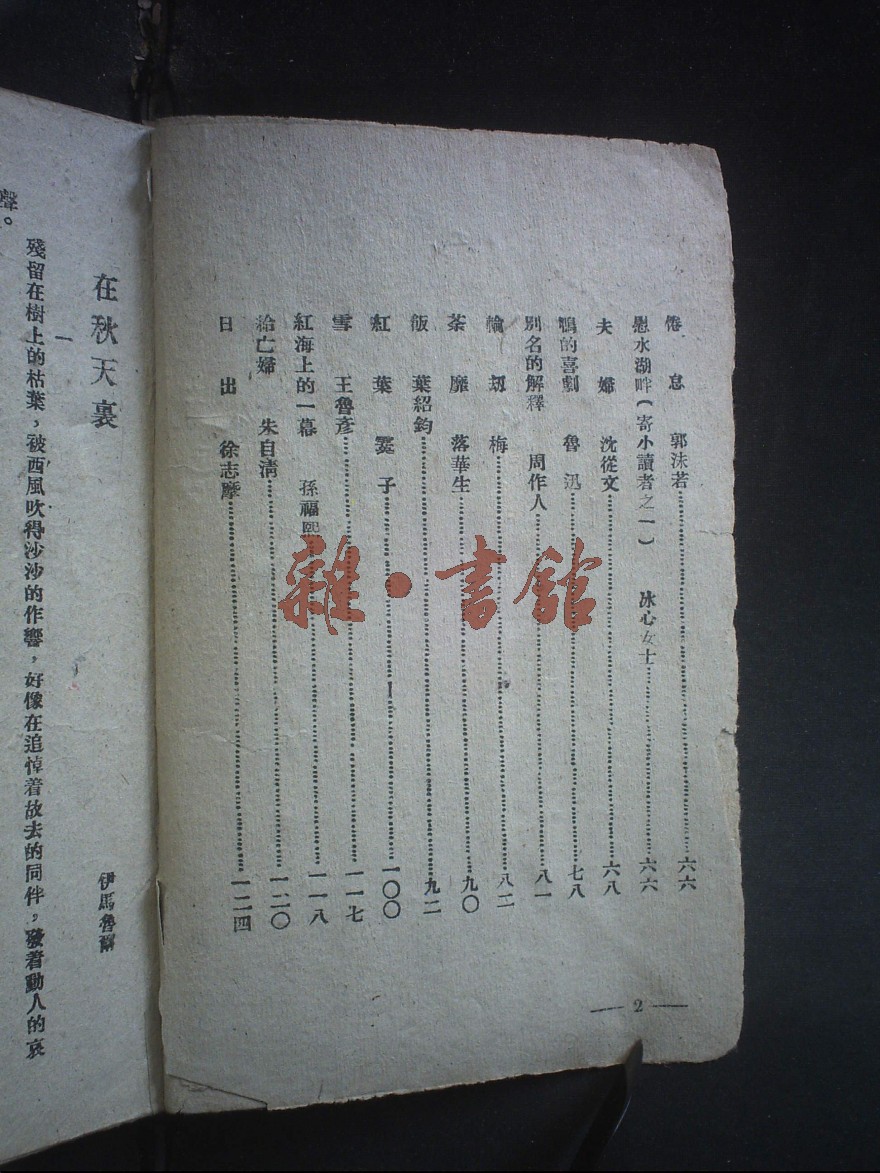 倦息　郭沫若……六六
慰水湖畔(寄小讀者之一)　冰心女士……六六
夫婦　沈從文……六八
鴨的喜劇　魯迅……七八
別名的解釋　周作人……八一
輪刼　梅……八二
荼靡　落華生……九〇
飯　葉紹鈞……九二
紅葉　雲子……一〇〇
雪　王魯彥……一一七
紅海上的一幕　孫福熙……一一八
給亡婦　朱自清……一二〇
日出　徐志摩……一二四
— 2 —
雜·書館
在秋天裏
伊馬魯爾
一
殘留在樹上的枯葉，被西風吹得沙沙的作響，好像在追悼着故去的同伴，發着動人的哀
聲。